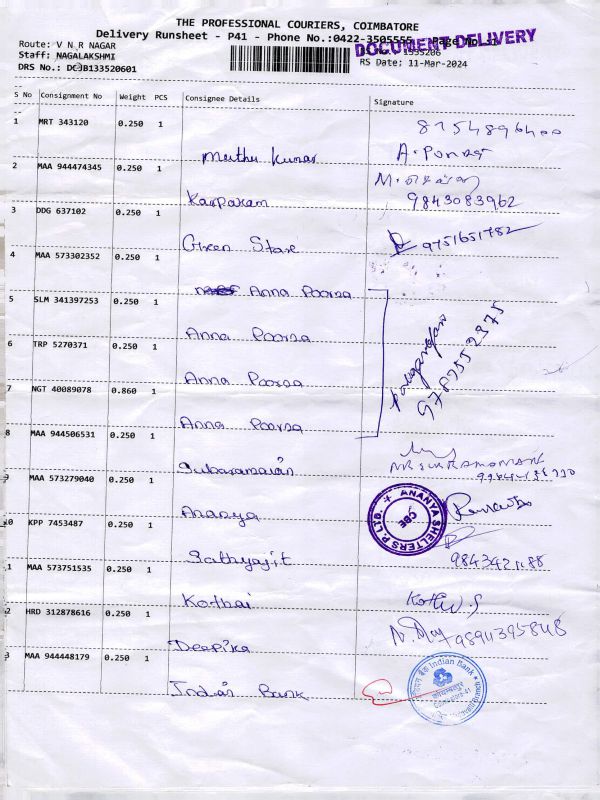 THE PROFESSIONAL COURIERS, COIMBATORE
Delivery Runsheet - P41 - Phone No.:0422-3505555 Page No.
DOCUMENT DELIVERY
Route: V N R NAGAR
1935206
Staff: NAGALAKSHMI
RS Date: 11-Mar-2024
DRS No.: DCJB133520601
S No Consignment No Weight PCS Consignee Details Signature
1 MRT 343120 0.250 1 8754896400
Muthu Kumar A.
2 MAA 944474345 0.250 1
Karpakam 9843083962
3 DDG 637102 0.250 1
Green Stare 9751651782
4 MAA 573302352 0.250 1
Anna Poorza
5 SLM 341397253 0.250 1
Anna Poorza
6 TRP 5270371 0.250 1
Anna Poorza
7 NGT 40089078 0.860 1
Anna Poorza
8 MAA 944506531 0.250 1
Subaramanian
9 MAA 573279040 0.250 1
Ananya
ANANYA SHELTERS P. LTD.
CBE
10 KPP 7453487 0.250 1
Sathyajit
1 MAA 573751535 0.250 1
Kothai
2 HRD 312878616 0.250 1
Deepika 9894395848
3 MAA 944448179 0.250 1
Indian Bank
Indian Bank